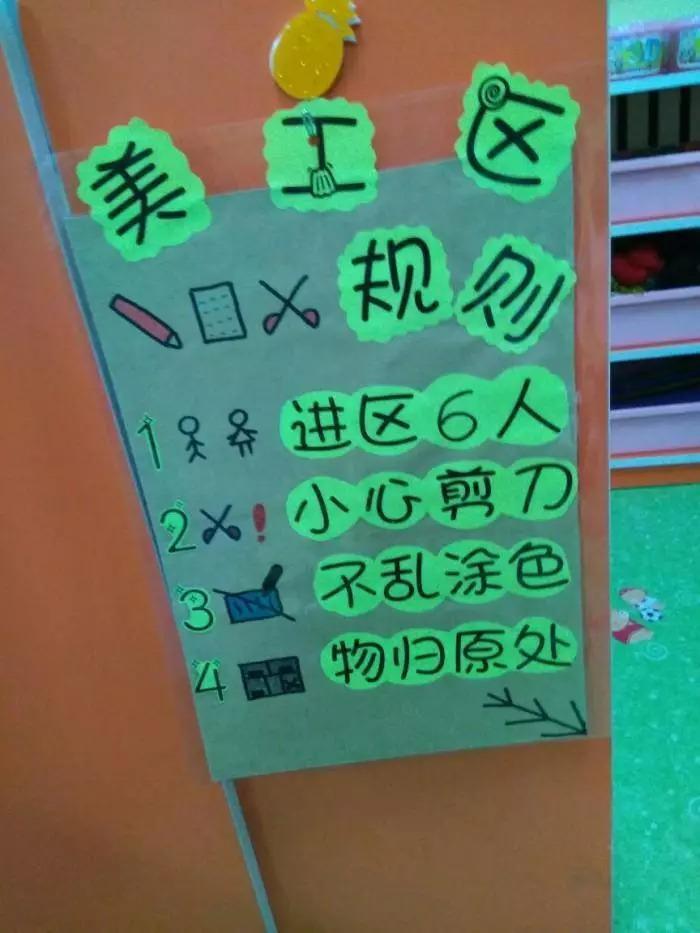 美工区
规则
1 进区6人
2 小心剪刀
3 不乱涂色
4 物归原处